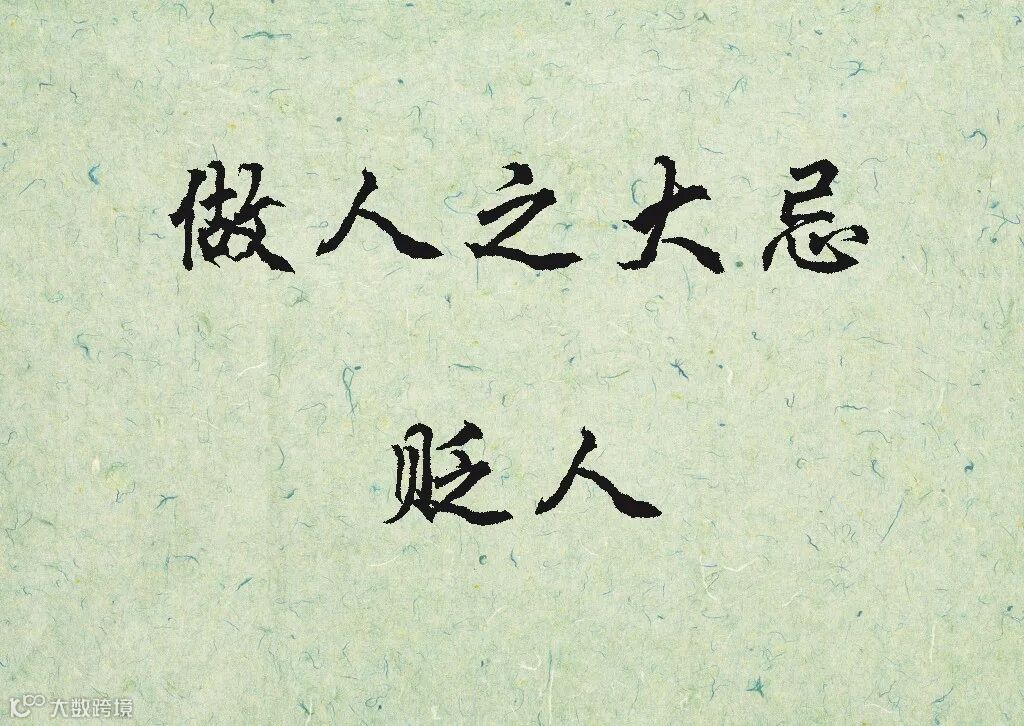 做人之大忌
贬人
大数跨境